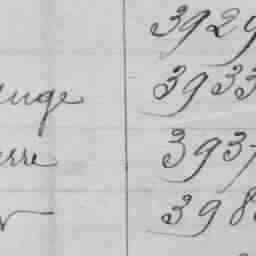 3929
uge 3933
erre 3937
398